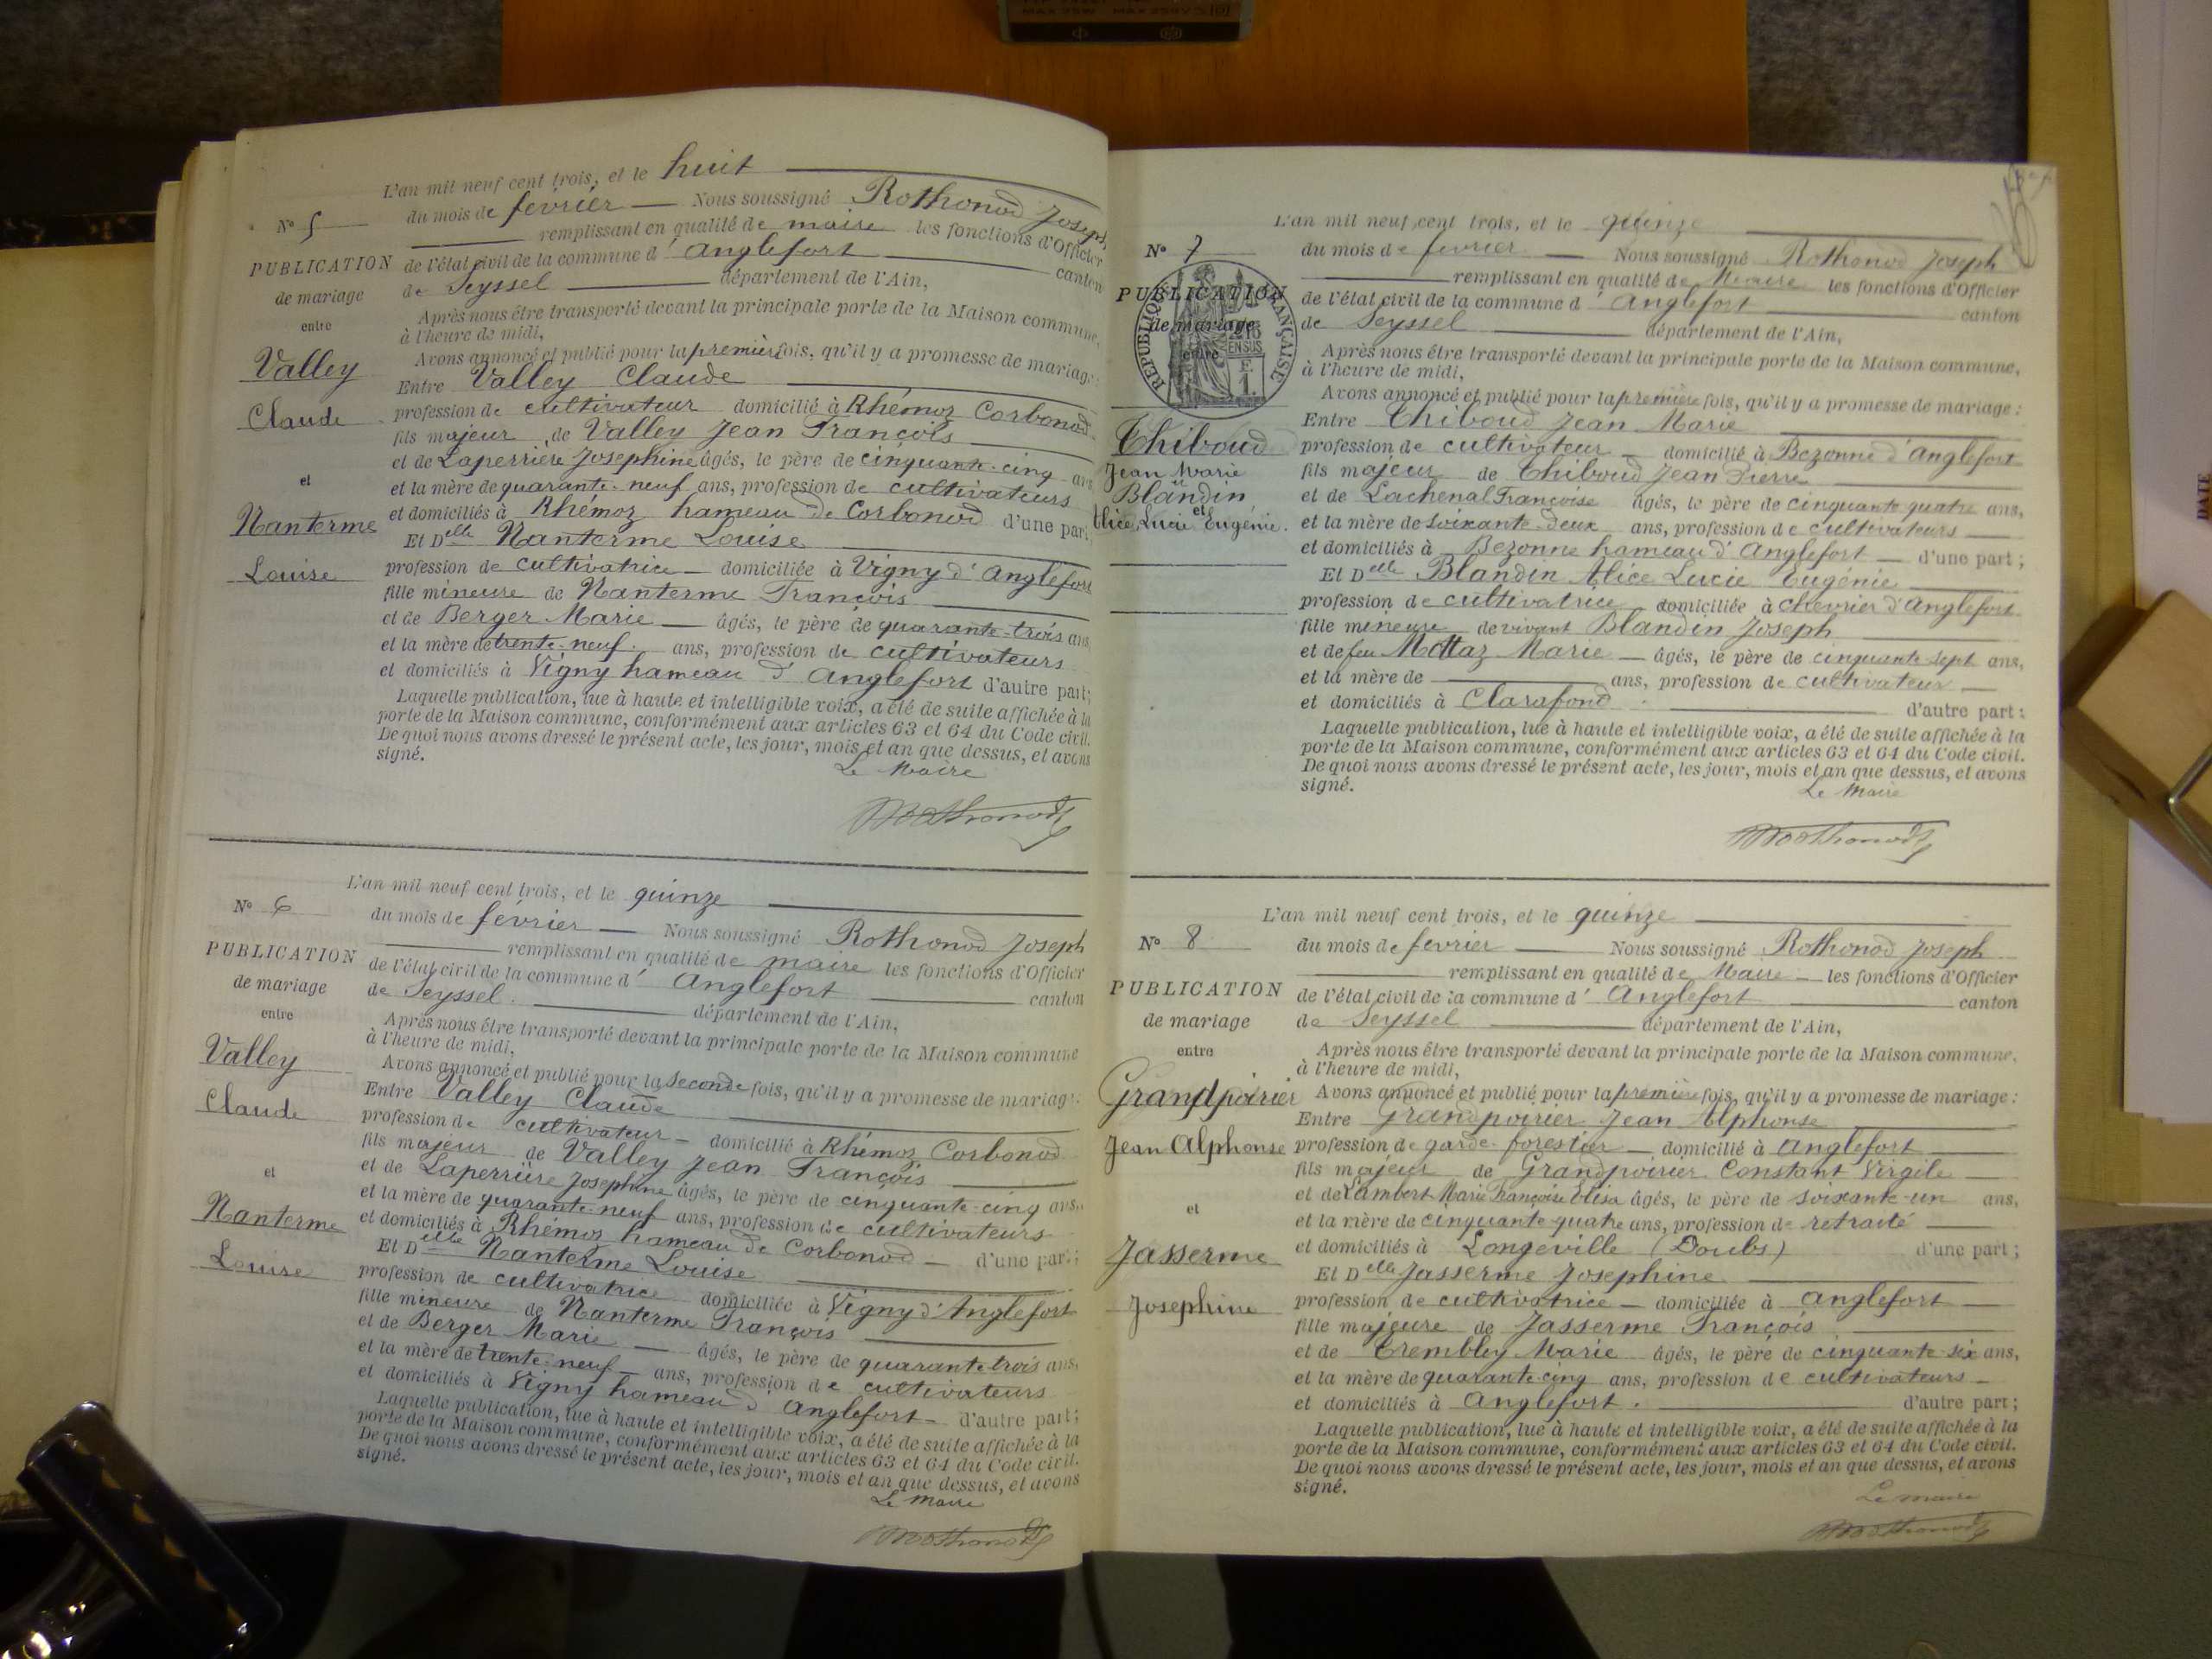 L'an mil neuf cent trois, et le huit
N° 5 du mois de février — Nous soussigné Rothonod Joseph
remplissant en qualité de maire les fonctions d'Officier
PUBLICATION de l'état civil de la commune d' Anglefort canton
de mariage de Seyssel département de l'Ain,
entre Après nous être transporté devant la principale porte de la Maison commune,
à l'heure de midi,
Avons annoncé et publié pour la première fois, qu'il y a promesse de mariage :
Valley Entre Valley Claude
Claude profession de cultivateur domicilié à Rhémoz Corbonod
fils majeur de Valley Jean François
et de Laperrière Josephine âgés, le père de cinquante-cinq ans
et et la mère de quarante-neuf ans, profession de cultivateurs
et domiciliés à Rhémoz hameau de Corbonod d'une part;
Nanterme Et Delle Nanterme Louise
Louise profession de cultivatrice — domiciliée à Vigny d'Anglefort
fille mineure de Nanterme François
et de Berger Marie — âgés, le père de quarante-trois ans,
et la mère de trente-neuf ans, profession de cultivateurs
et domiciliés à Vigny hameau d' Anglefort d'autre part;
Laquelle publication, lue à haute et intelligible voix, a été de suite affichée à la
porte de la Maison commune, conformément aux articles 63 et 64 du Code civil.
De quoi nous avons dressé le présent acte, les jour, mois et an que dessus, et avons
signé.
Le Maire
Rothonod
L'an mil neuf cent trois, et le quinze
N° 6 du mois de février — Nous soussigné Rothonod Joseph
remplissant en qualité de maire les fonctions d'Officier
PUBLICATION de l'état civil de la commune d' Anglefort canton
de mariage de Seyssel département de l'Ain,
entre Après nous être transporté devant la principale porte de la Maison commune
à l'heure de midi,
Avons annoncé et publié pour la seconde fois, qu'il y a promesse de mariage :
Valley Entre Valley Claude
Claude profession de cultivateur — domicilié à Rhémoz Corbonod
fils majeur de Valley Jean François
et de Laperrière Josephine âgés, le père de cinquante-cinq ans,
et et la mère de quarante-neuf ans, profession de cultivateurs
et domiciliés à Rhémoz hameau de Corbonod — d'une part;
Nanterme Et Delle Nanterme Louise
Louise profession de cultivatrice domiciliée à Vigny d'Anglefort
fille mineure de Nanterme François
et de Berger Marie — âgés, le père de quarante-trois ans,
et la mère de trente-neuf ans, profession de cultivateurs
et domiciliés à Vigny hameau d' Anglefort — d'autre part;
Laquelle publication, lue à haute et intelligible voix, a été de suite affichée à la
porte de la Maison commune, conformément aux articles 63 et 64 du Code civil.
De quoi nous avons dressé le présent acte, les jour, mois et an que dessus, et avons
signé.
Le maire
Rothonod
L'an mil neuf cent trois, et le quinze
N° 7 du mois de fevrier — Nous soussigné Rothonod Joseph
remplissant en qualité de Maire les fonctions d'Officier
PUBLICATION de l'état civil de la commune d' Anglefort canton
de mariage de Seyssel département de l'Ain,
entre Après nous être transporté devant la principale porte de la Maison commune,
à l'heure de midi,
REPUBLIQUE FRANÇAISE
Avons annoncé et publié pour la première fois, qu'il y a promesse de mariage :
Entre Thiboud Jean Marie
Thiboud profession de cultivateur — domicilié à Bezonne d'Anglefort
Jean Marie fils majeur de Thiboud Jean Pierre
et
Blandin et de Lachenal Françoise âgés, le père de cinquante quatre ans,
et
Alice Lucie Eugénie. et la mère de soixante-deux ans, profession de cultivateurs
et domiciliés à Bezonne hameau d'Anglefort — d'une part;
Et Delle Blandin Alice Lucie Eugénie
profession de cultivatrice domiciliée à Chevrier d'Anglefort
fille mineure de vivant Blandin Joseph
et de feu Mottaz Marie — âgés, le père de cinquante sept ans,
et la mère de ans, profession de cultivateur —
et domiciliés à Clarafond d'autre part;
Laquelle publication, lue à haute et intelligible voix, a été de suite affichée à la
porte de la Maison commune, conformément aux articles 63 et 64 du Code civil.
De quoi nous avons dressé le présent acte, les jour, mois et an que dessus, et avons
signé.
Le Maire
Rothonod
L'an mil neuf cent trois, et le quinze
N° 8 du mois de fevrier Nous soussigné Rothonod Joseph
remplissant en qualité de Maire — les fonctions d'Officier
PUBLICATION de l'état civil de la commune d' Anglefort canton
de mariage de Seyssel département de l'Ain,
entre Après nous être transporté devant la principale porte de la Maison commune,
à l'heure de midi,
Grandpoirier Avons annoncé et publié pour la première fois, qu'il y a promesse de mariage :
Entre Grandpoirier Jean Alphonse
Jean Alphonse profession de garde-forestier — domicilié à Anglefort
fils majeur de Grandpoirier Constant Virgile —
et de Lambert Marie Françoise Elisa âgés, le père de soixante-un ans,
et et la mère de cinquante-quatre ans, profession de retraité
et domiciliés à Longeville (Doubs) d'une part;
Jasserme Et Delle Jasserme Josephine
Josephine profession de cultivatrice — domiciliée à Anglefort —
fille majeure de Jasserme François
et de Trembley Marie âgés, le père de cinquante-six ans,
et la mère de quarante-cinq ans, profession de cultivateurs —
et domiciliés à Anglefort. d'autre part;
Laquelle publication, lue à haute et intelligible voix, a été de suite affichée à la
porte de la Maison commune, conformément aux articles 63 et 64 du Code civil.
De quoi nous avons dressé le présent acte, les jour, mois et an que dessus, et avons
signé.
Le maire
Rothonod
DATE